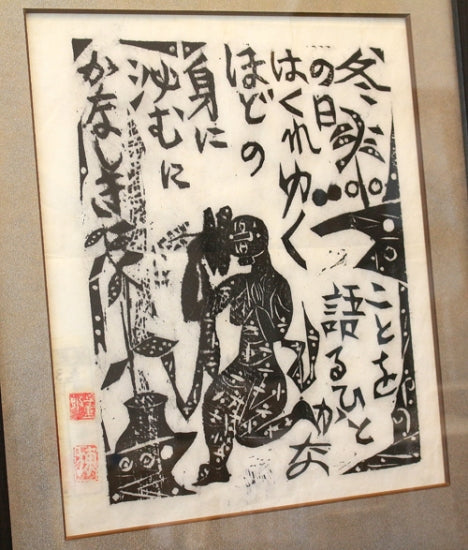 冬
の日
はくれゆく
ほどの
身に
沁むに
かなしき
ことを
語るひと
かな